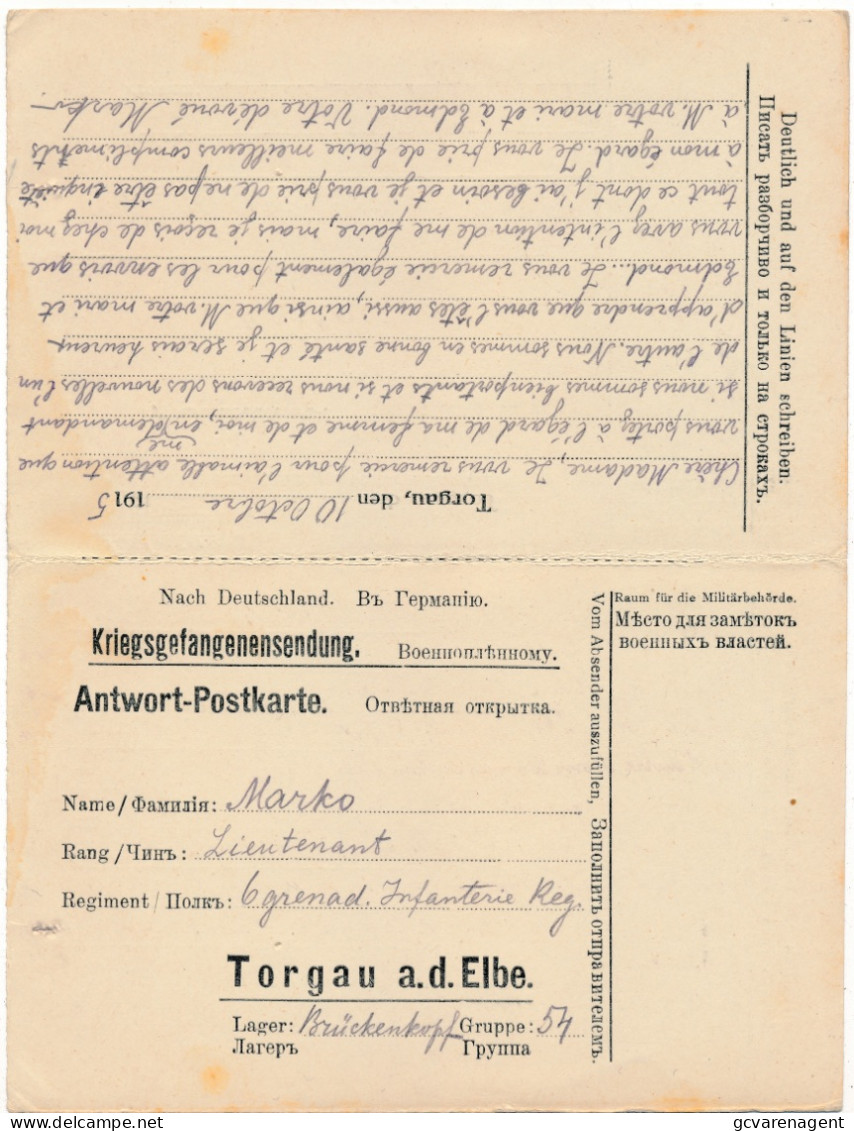 Deutlich und auf den Linien schreiben.
Писать разборчиво и только на строкахъ.
Torgau, den 10 Octobre 1915
Chère Madame, Je vous remercie pour l'aimable attention que
vous portez à l'égard de ma femme et de moi, en me demandant
si nous sommes bienportants et si nous recevons des nouvelles l'un
de l'autre. Nous sommes en bonne santé et je serais heureux
d'apprendre que vous l'êtes aussi, ainsi que M. votre mari et
Edmond... Je vous remercie également pour les envois que
vous avez l'intention de me faire, mais je reçois de chez moi
tout ce dont j'ai besoin et je vous prie de ne pas être inquiète
à mon égard. Je vous prie de faire meilleurs compliments
à M. votre mari et à Edmond. Votre dévoué Marko
Nach Deutschland. Въ Германію.
Kriegsgefangenensendung. Военноплѣнному.
Antwort-Postkarte. Отвѣтная открытка.
Name/Фамилія: Marko
Rang/Чинъ: Lieutenant
Regiment/Полкъ: 6 grenad. Infanterie Reg.
Torgau a.d. Elbe.
Lager: Brückenkopf Gruppe: 54
Лагеръ Группа
Vom Absender auszufüllen, Заполнить отправителемъ.
Raum für die Militärbehörde.
Мѣсто для замѣтокъ
военныхъ властей.
delcampe.net
gcvarenagent